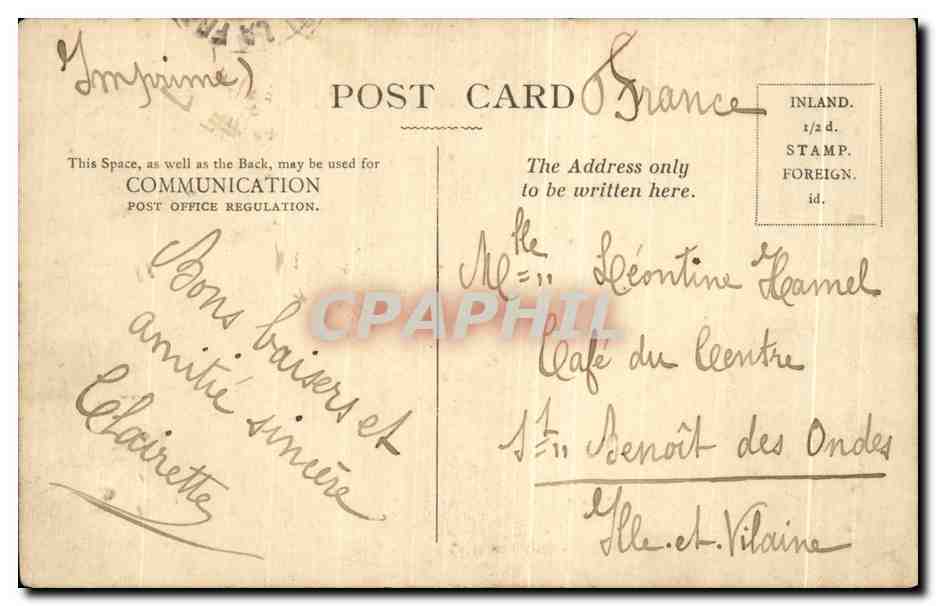 LA FRA
Imprimé)
POST CARD
France
INLAND.
1/2 d.
STAMP.
FOREIGN.
id.
This Space, as well as the Back, may be used for
COMMUNICATION
POST OFFICE REGULATION.
The Address only
to be written here.
Bons baisers et
amitié sincère
Clairette
Mlle Léontine Hamel
Café du Centre
St Benoît des Ondes
Ille-et-Vilaine
CPAPHIL